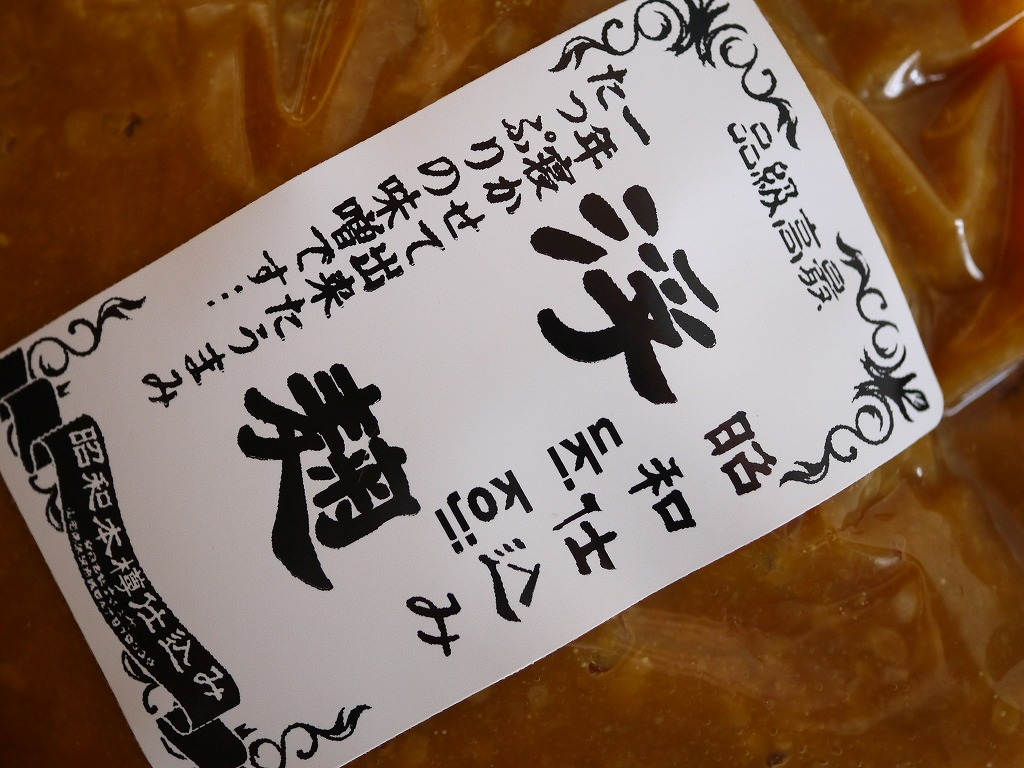 最高級品
昭和仕込み
Uki. Koji:
浮麹
一年寝かせて出来たうまみ
たっぷりの味噌です…
昭和本樽仕込み